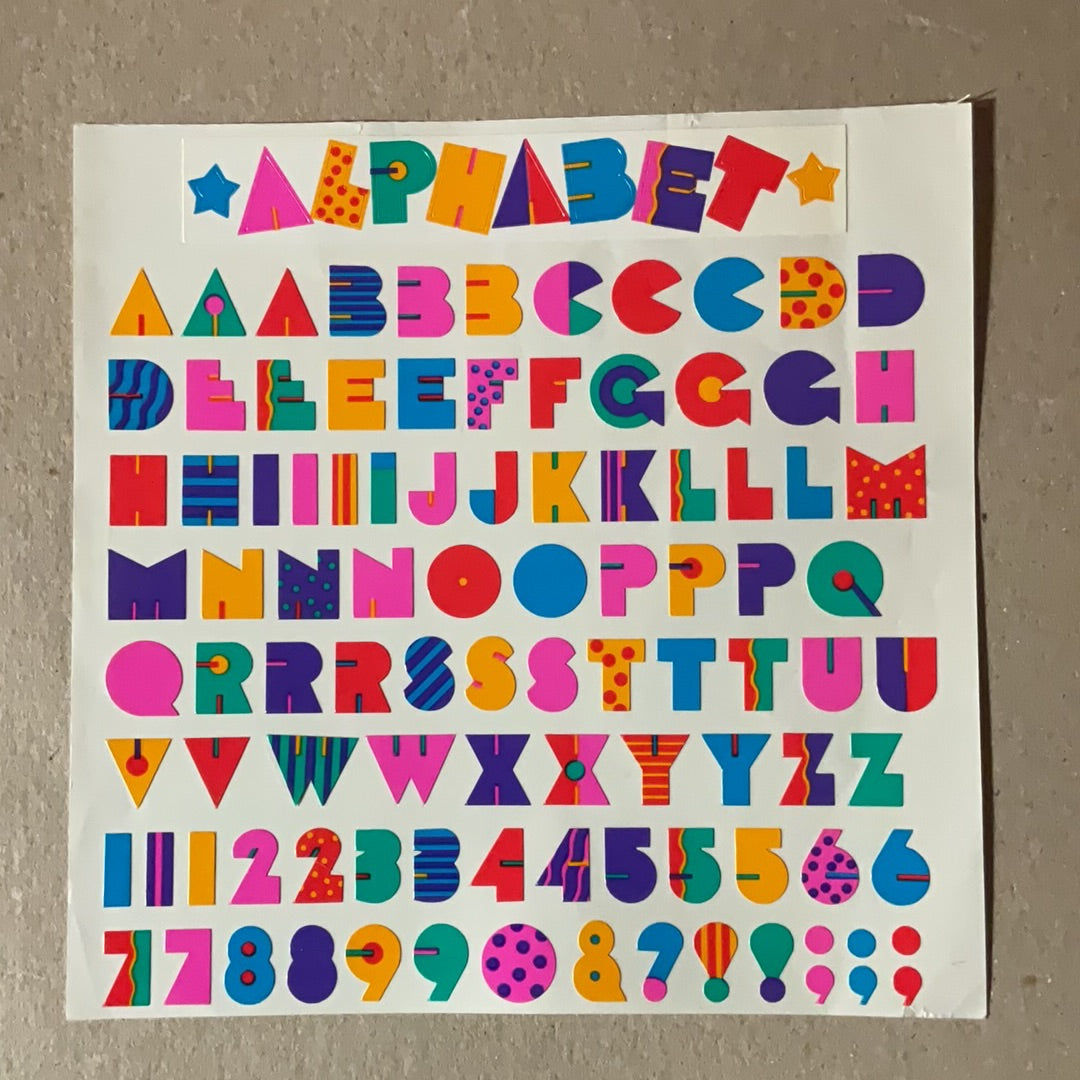 ALPHABET
AAABBBCCCDD
DEEEEFFGGGH
HHIIIIJJKKLLLM
MNNNOOPPPQ
QRRRSSSTTTUU
VVWWXXYYZZ
11122334455566
7788990&?!!;;;